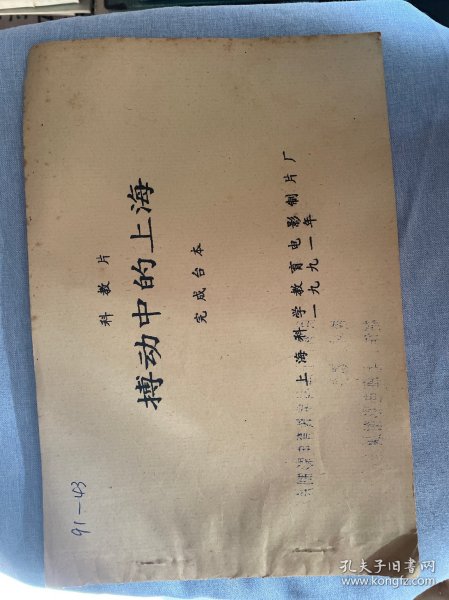 科教片
搏动中的上海
完成台本
上海科学教育电影制片厂
一九九一年
91—43
孔夫子旧书网
www.kongfz.com